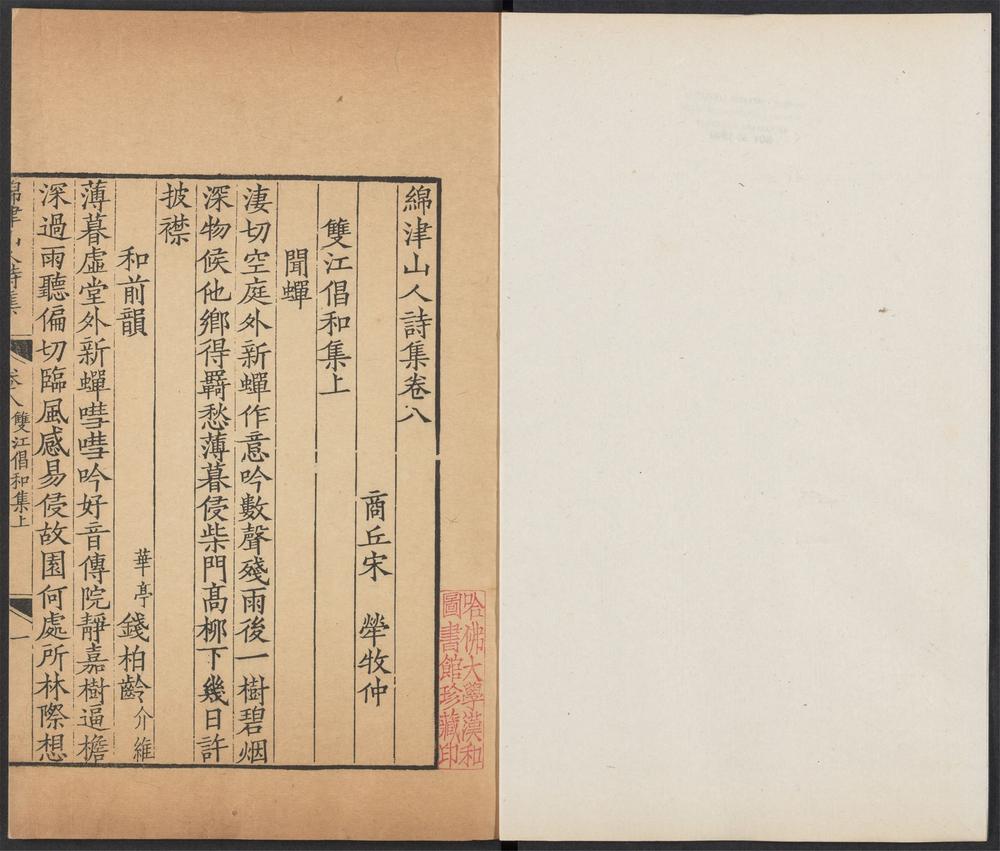 綿津山人詩集卷八
商丘宋　犖牧仲
雙江倡和集上
聞蟬
淒切空庭外新蟬作意吟數聲殘雨後一樹碧烟
深物候他鄉得羇愁薄暮侵柴門高柳下幾日許
披襟
和前韻
華亭錢柏齡介維
薄暮虛堂外新蟬嘒嘒吟好音傳院靜嘉樹逼檐
深過雨聽偏切臨風感易侵故園何處所林際想
綿津山人詩集
卷八
雙江倡和集上
一
哈佛大學漢和
圖書館珍藏印